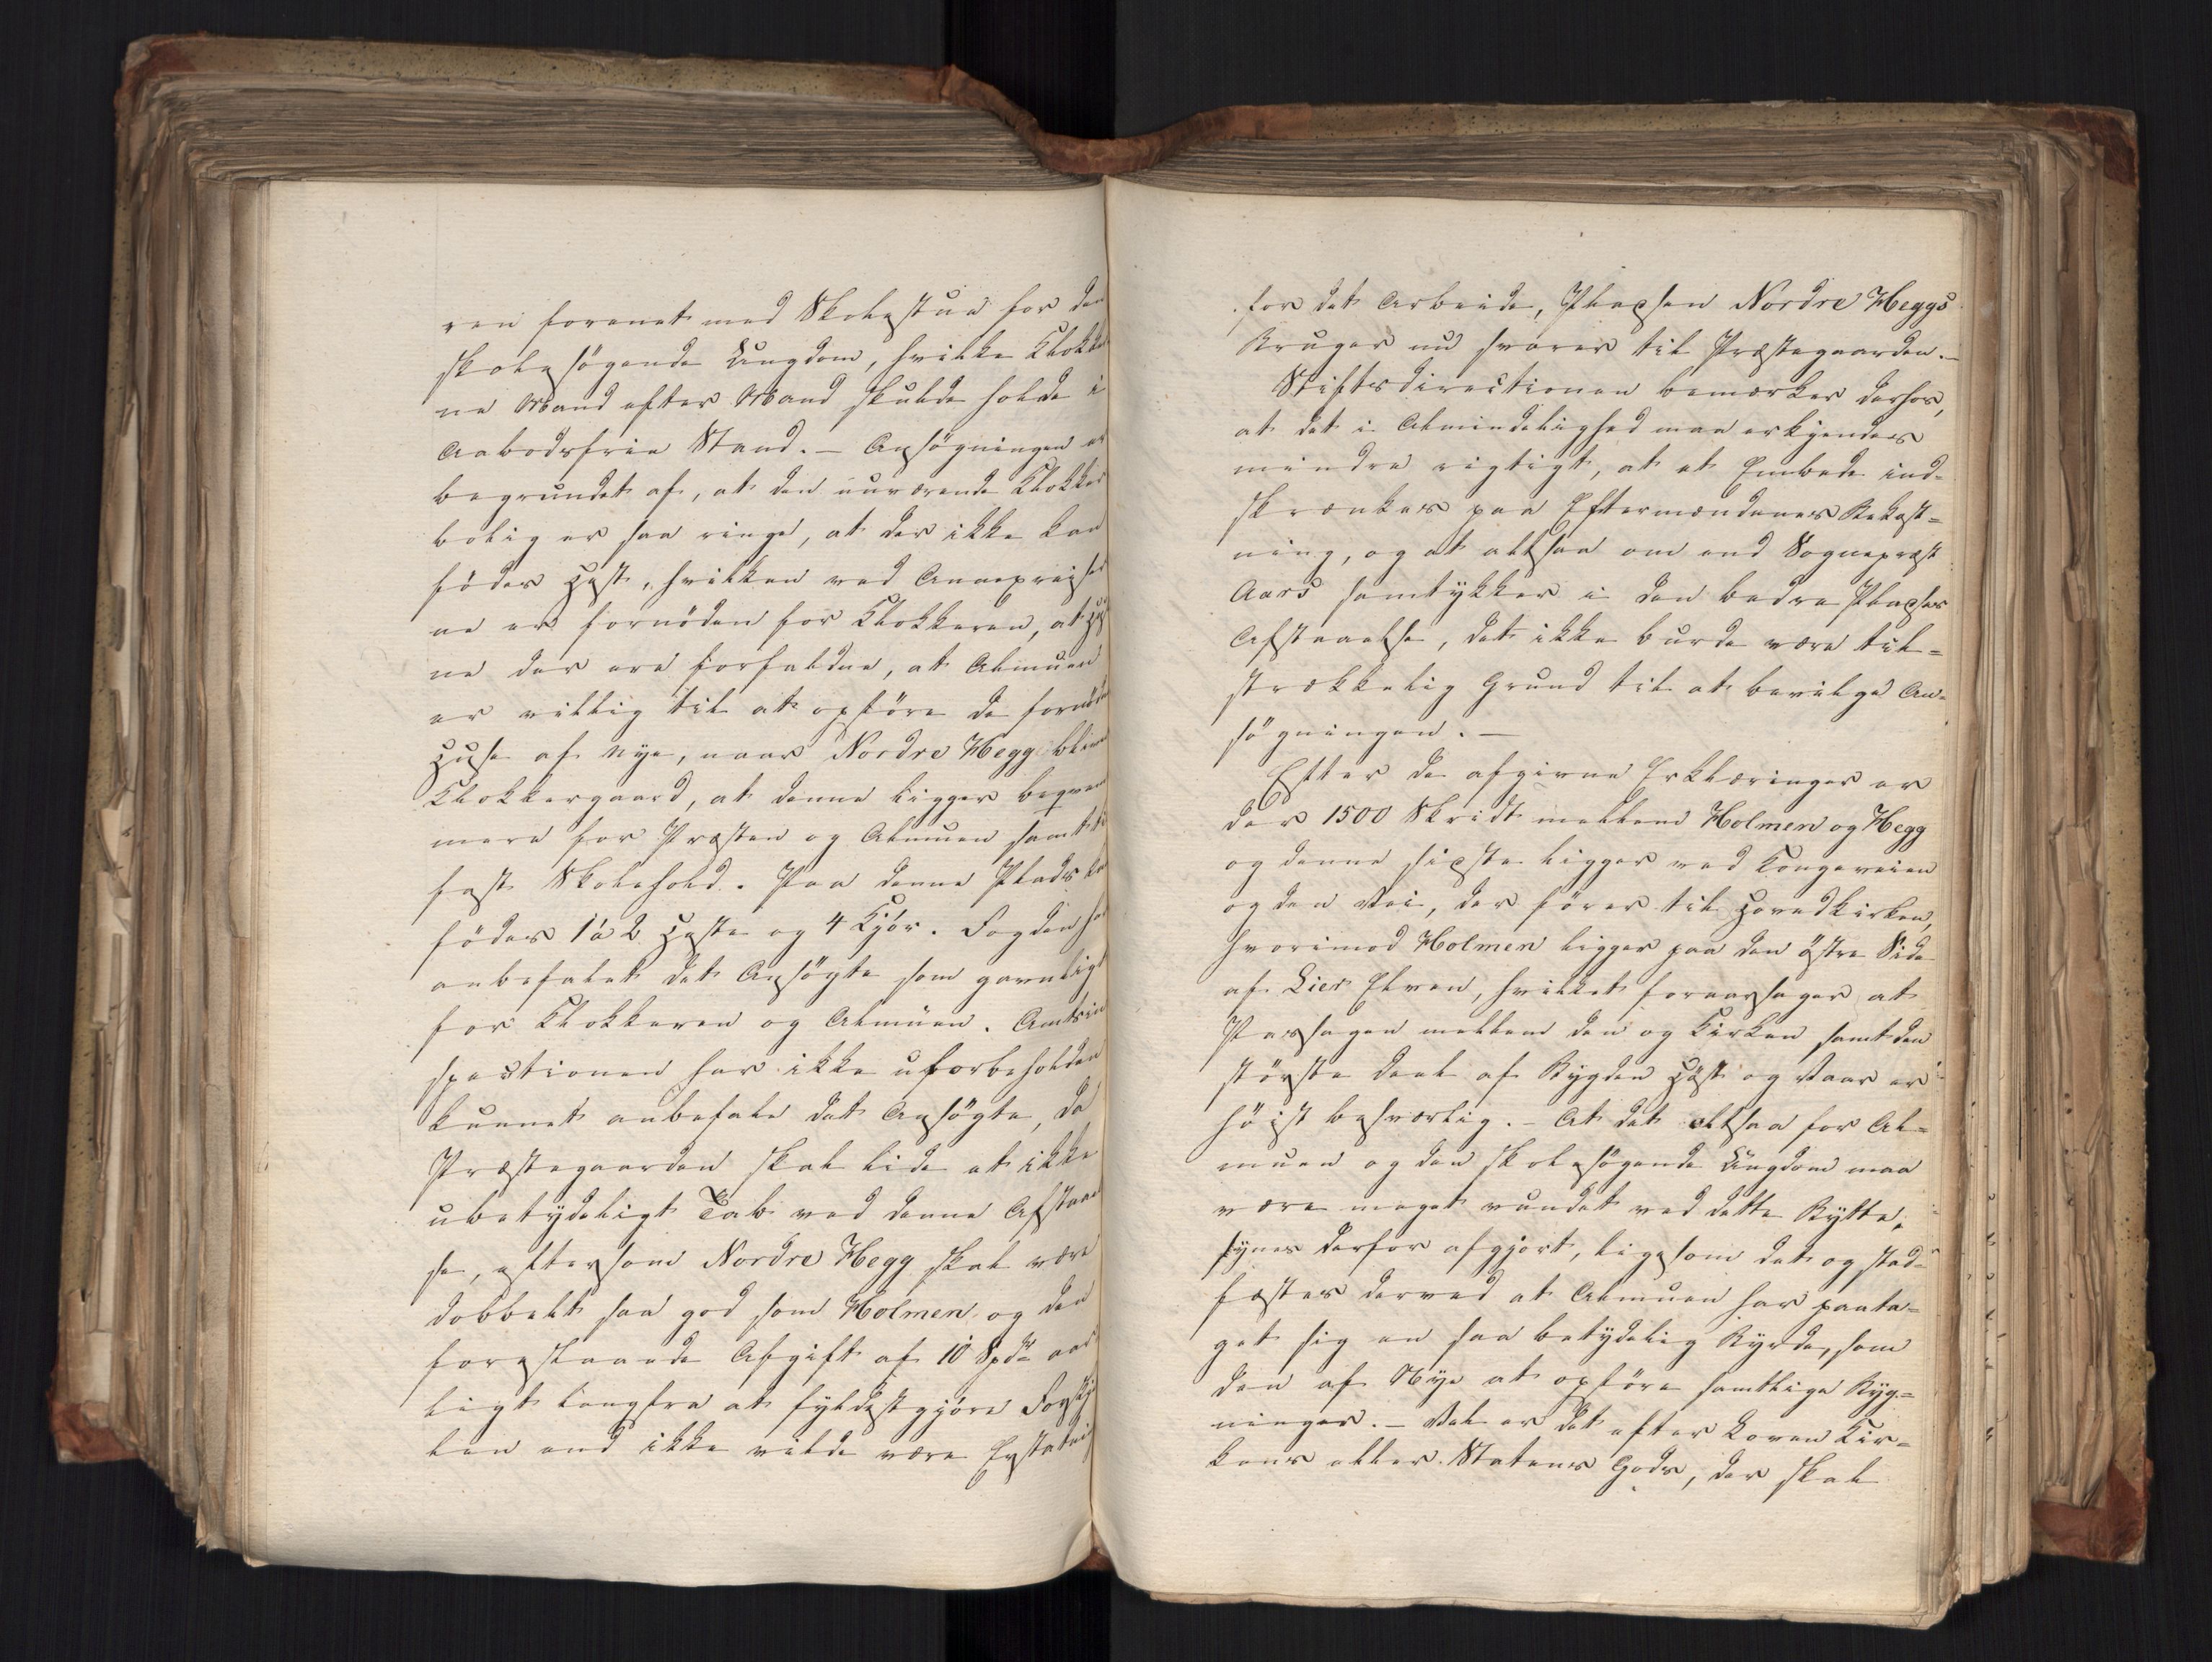 ren forenet med Skolestue for den
skolesögende Ungdom, hvilke Klokker
ne Mand efter Mand skulde holde i
Aabodsfrie Stand. — Ansögningen er
begrundet af, at den nuværende Klokker
bolig er saa ringe, at der ikke kan
födes Hest, hvilken ved Annexreiser
ne er fornöden for Klokkeren, at Huse
ne der ere forfaldne, at Almuen
er villig til at opföre de fornödne
Huse af nye, naar Nordre Hegg bliver
Klokkergaard, at denne ligger beqvem
mere for Præsten og Almuen samt til
fast Skolehold. Paa denne Plads kan
födes 1 à 2 Heste og 4 Kjör. Fogden har
anbefalet det Ansögte som gavnligt
for Klokkeren og Almuen. Amtsin
spectionen har ikke uforbeholden
kunnet anbefale det Ansögte, da
Præstegaarden skal lide et ikke
ubetydeligt Tab ved denne Afstaael
se, eftersom Nordre Hegg skal være
dobbelt saa god som Holmen og den
forestaaende Afgift af 10 Spdr aar
ligt langtfra at fyldestgjöre Forskjel
len end ikke vilde være Erstatning
for det Arbeide, Pladsen Nordre Heggs
Bruger nu svarer til Præstegaarden. —
Stiftsdirectionen bemærker derhos,
at det i Almindelighed maa erkjendes
mindre rigtigt, at et Embede ind-
skrænkes paa Eftermændenes Bekost-
ning, og at altsaa om end Sognepræst
Aars samtykker i den bedre Pladses
Afstaaelse, det ikke burde være til-
strækkelig Grund til at bevilge An-
sögningen. —
Efter de afgivne Erklæringer er
der 1500 Skridt mellem Holmen og Hegg
og denne sidste ligger ved Kongeveien
og den Vei, der förer til Hovedkirken,
hvorimod Holmen ligger paa den östre Side
af Lier Elven, hvilket foraarsager at
Passagen mellem den og Kirken samt den
störste Deel af Bygden Höst og Vaar er
höist besværlig. — At det altsaa for Al-
muen og den skolesögende Ungdom maa
være meget vundet ved dette Bytte,
synes derfor afgjort, ligesom det og stad-
fæstes derved at Almuen har paata-
get sig en saa betydelig Byrde, som
den af Nye at opföre samtlige Byg-
ninger. — Vel er det efter Loven Kir-
kens eller Statens Gods, der skal